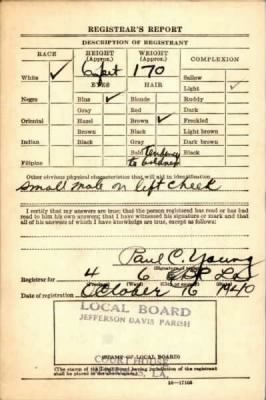 REGISTRAR'S REPORT
DESCRIPTION OF REGISTRANT
RACE HEIGHT (Approx.) WEIGHT (Approx.) COMPLEXION
6 feet 170
White ✓ Sallow
EYES HAIR Light ✓
Negro Blue ✓ Blonde Ruddy
Gray Red Dark
Oriental Hazel Brown ✓ Freckled
Brown Black Light brown
Indian Black Gray Dark brown
Bald tendency to baldness Black
Filipino
Other obvious physical characteristics that will aid in identification
small mole on left cheek
I certify that my answers are true; that the person registered has read or has had
read to him his own answers; that I have witnessed his signature or mark and that
all of his answers of which I have knowledge are true, except as follows:
Paul C. Young
(Signature of registrar)
Registrar for 4 6
Date of registration October 16 1940
LOCAL BOARD
JEFFERSON DAVIS PARISH
COURT HOUSE
LA.
(STAMP OF LOCAL BOARD)
(The stamp of the Local Board having jurisdiction of the registrant
shall be placed in the above space.)
16—17105